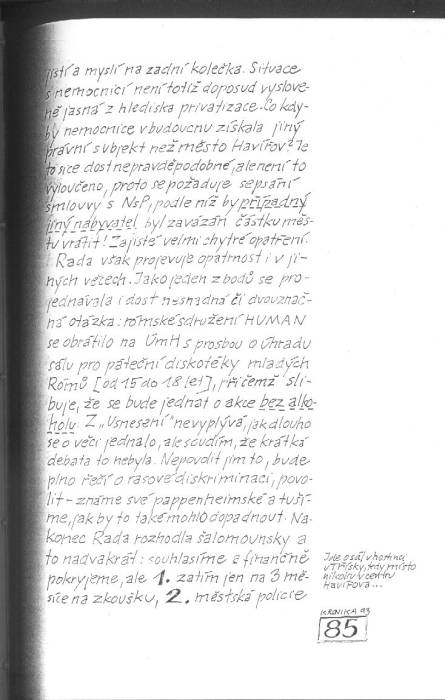 jistí a myslí na zadní kolečka. Situace
s nemocnicí není totiž doposud vyslove-
ně jasná z hlediska privatizace. Co kdy-
by nemocnice v budoucnu získala jiný
právní subjekt než město Havířov? Je
to sice dost nepravděpodobné, ale není to
vyloučeno, proto se požaduje sepsání
smlouvy s NsP, podle níž by případný
jiný nabyvatel byl zavázán částku měs-
tu vrátit! Zajisté velmi chytré opatření.
Rada však projevuje opatrnost i v ji-
ných věcech. Jako jeden z bodů se pro-
jednávala i dost nesnadná či dvouznač-
ná otázka: romské sdružení HUMAN
se obrátilo na ÚmH s prosbou o úhradu
sálu pro páteční diskotéky mladých
Romů [od 15 do 18 let], přičemž sli-
buje, že se bude jednat o akce bez alko-
holu. Z „Usnesení" nevyplývá, jak dlouho
se o věci jednalo, ale soudím, že krátká
debata to nebyla. Nepovolit jim to, bude
plno řečí o rasové diskriminaci, povo-
lit - známe své pappenheimské a tuší-
me, jak by to také mohlo dopadnout. Na-
konec Rada rozhodla šalomounsky a
to nadvakrát: souhlasíme a finančně
pokryjeme, ale 1. zatím jen na 3 mě-
síce na zkoušku, 2. městská policie
Jde o sál v hostinci
u Třísky, tedy místo
nikoliv v centru
Havířova...
KRONIKA 93
85